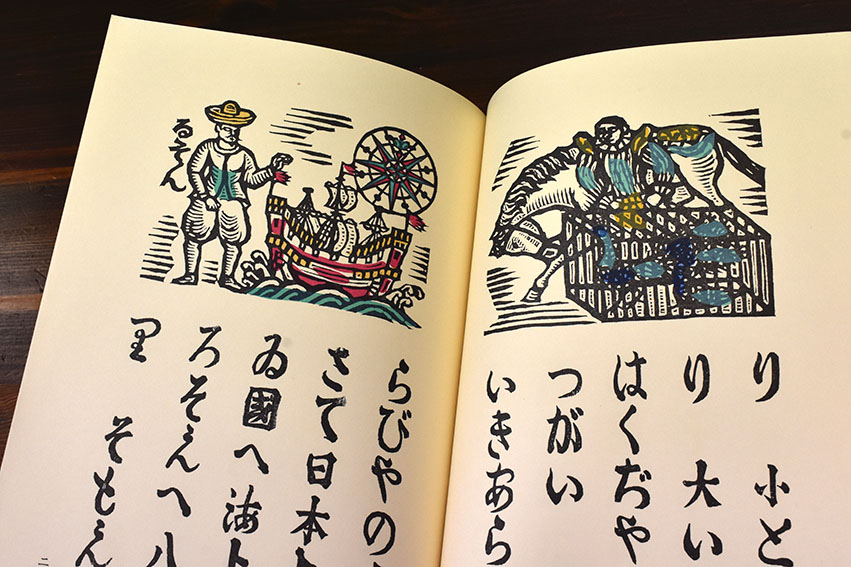 り 小と
り 大い
はくぢや
つがい
いきあら
るそん
らびやの
さて日本
ゐ國へ海
ろそんへ八
里 そも
二